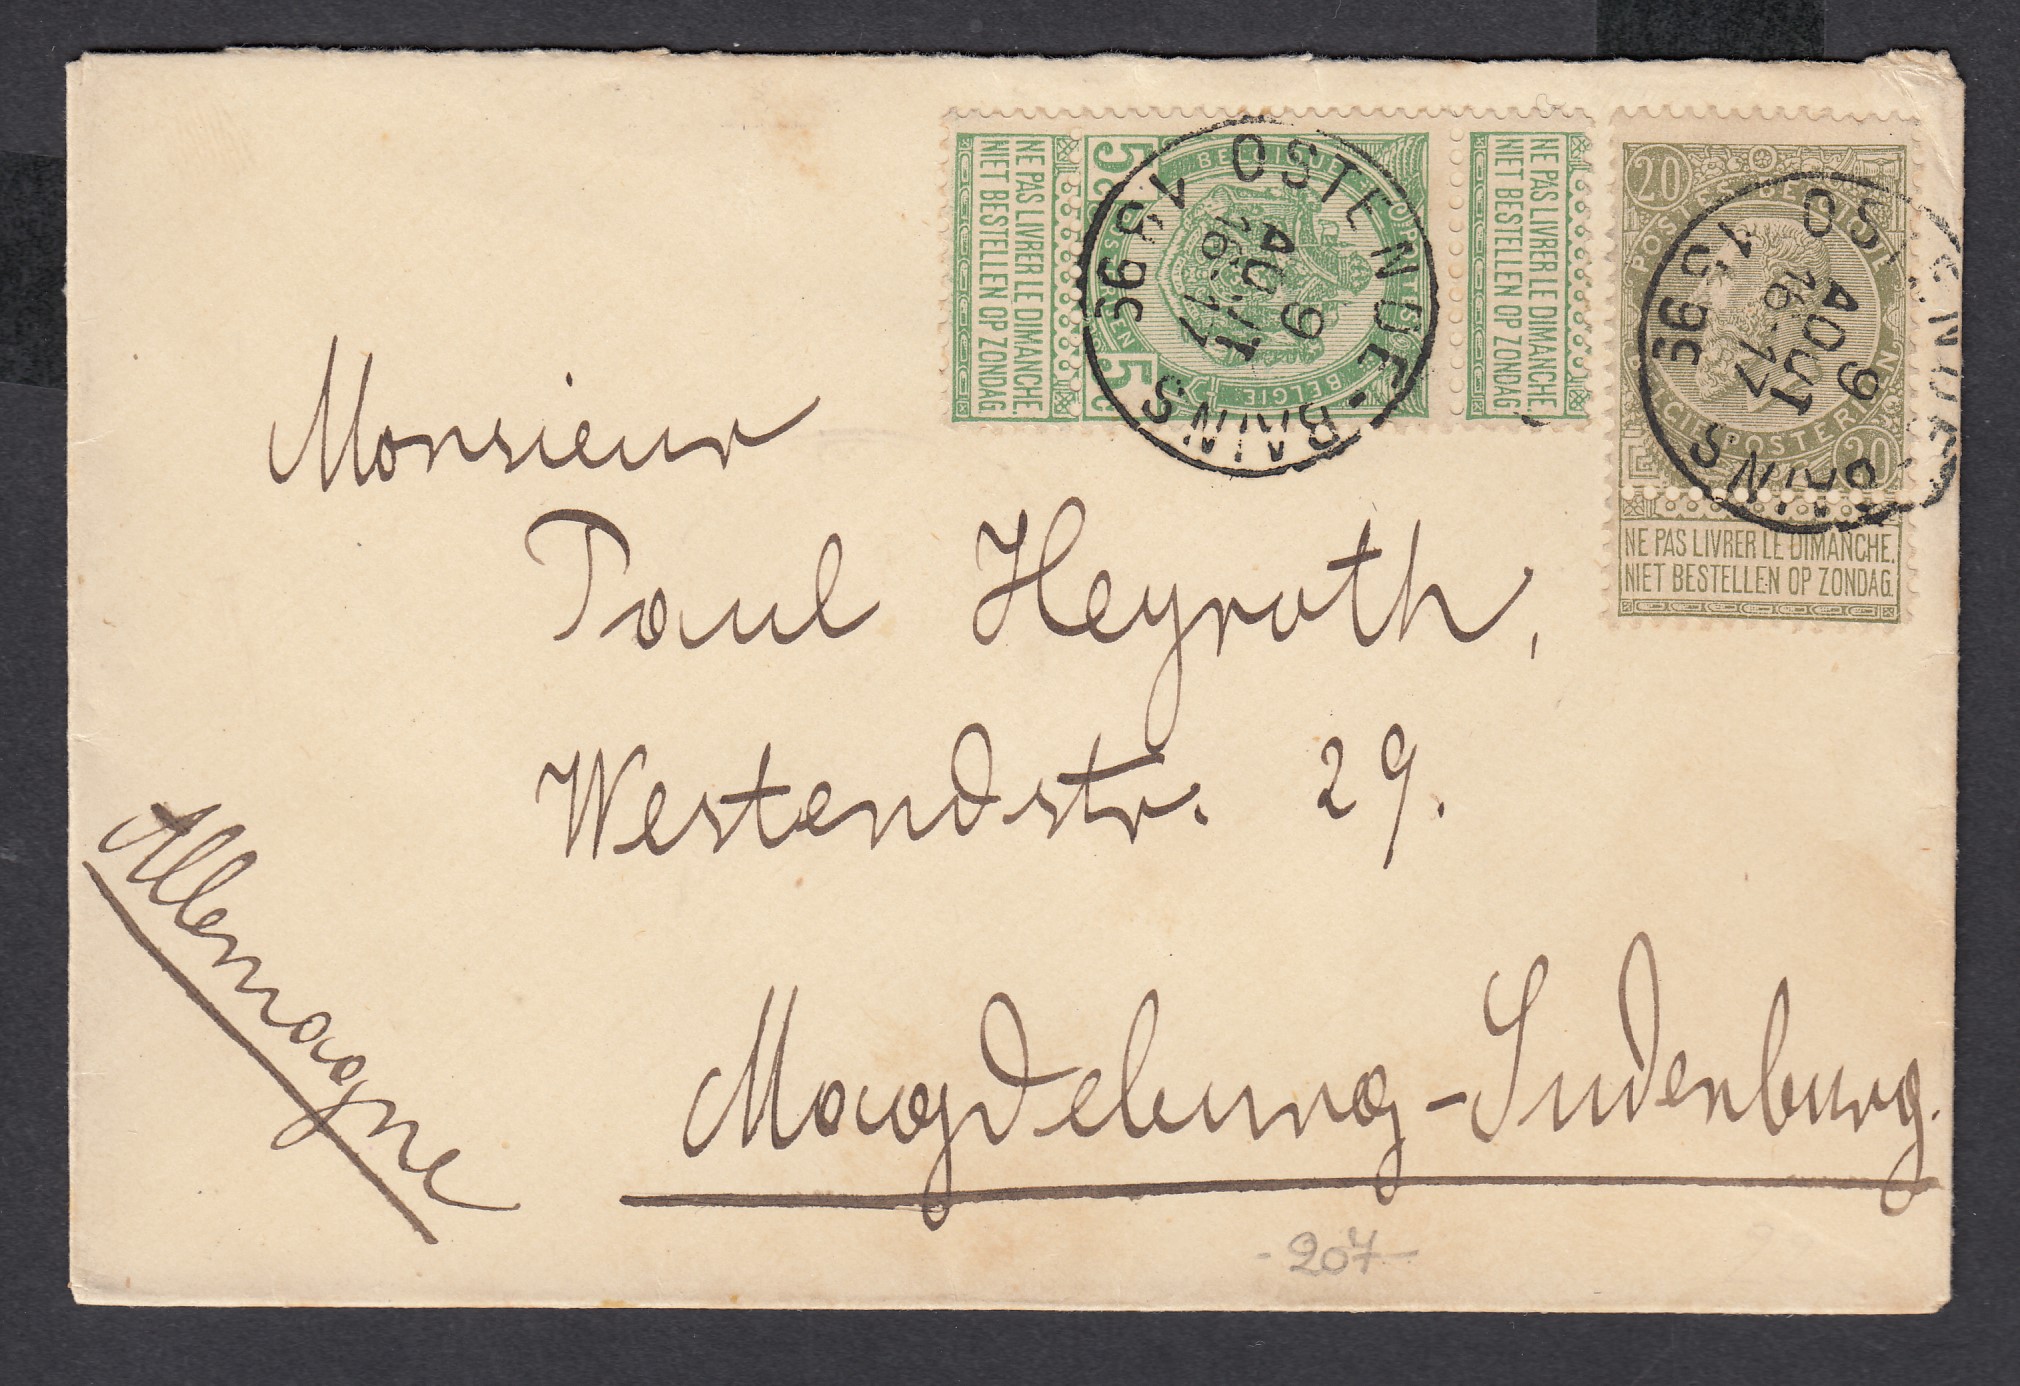 NE PAS LIVRER LE DIMANCHE.
NIET BESTELLEN OP ZONDAG
5c 5c
BELGIQUE
BELGIE
NE PAS LIVRER LE DIMANCHE.
NIET BESTELLEN OP ZONDAG
OSTENDE-BAINS
9
AOUT
16-17
1896
20 20
POSTES BELGIË
POSTERIJEN
NE PAS LIVRER LE DIMANCHE.
NIET BESTELLEN OP ZONDAG.
9
AOUT
16-17
Monsieur
Paul Heyroth,
Westendstr. 29.
Magdeburg-Sudenburg.
Allemagne
-207-